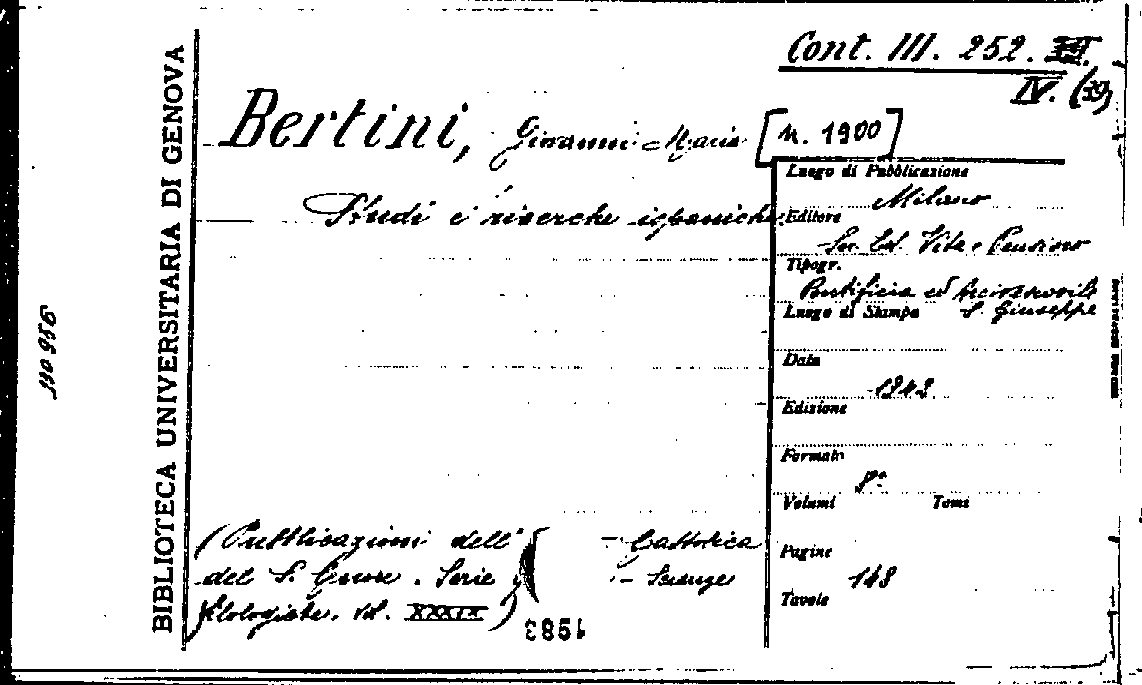 Cont. III. 252.
IV. (39)
Bertini, Giovanni Maria [n. 1900]
Studi e ricerche ispaniche.
Luogo di Pubblicazione
Milano
Editore
Soc. Ed. Vita e Pensiero
Tipogr.
Pontificia ed Arcivescovile
Luogo di Stampa S. Giuseppe
Data
1942
Edizione
Formato
8°
Volumi Tomi
Pagine
148
Tavole
(Pubblicazioni dell' Cattolica
del S. Cuore. Serie Scienze
filologiche. Vol. XXXIX)
1983
BIBLIOTECA UNIVERSITARIA DI GENOVA